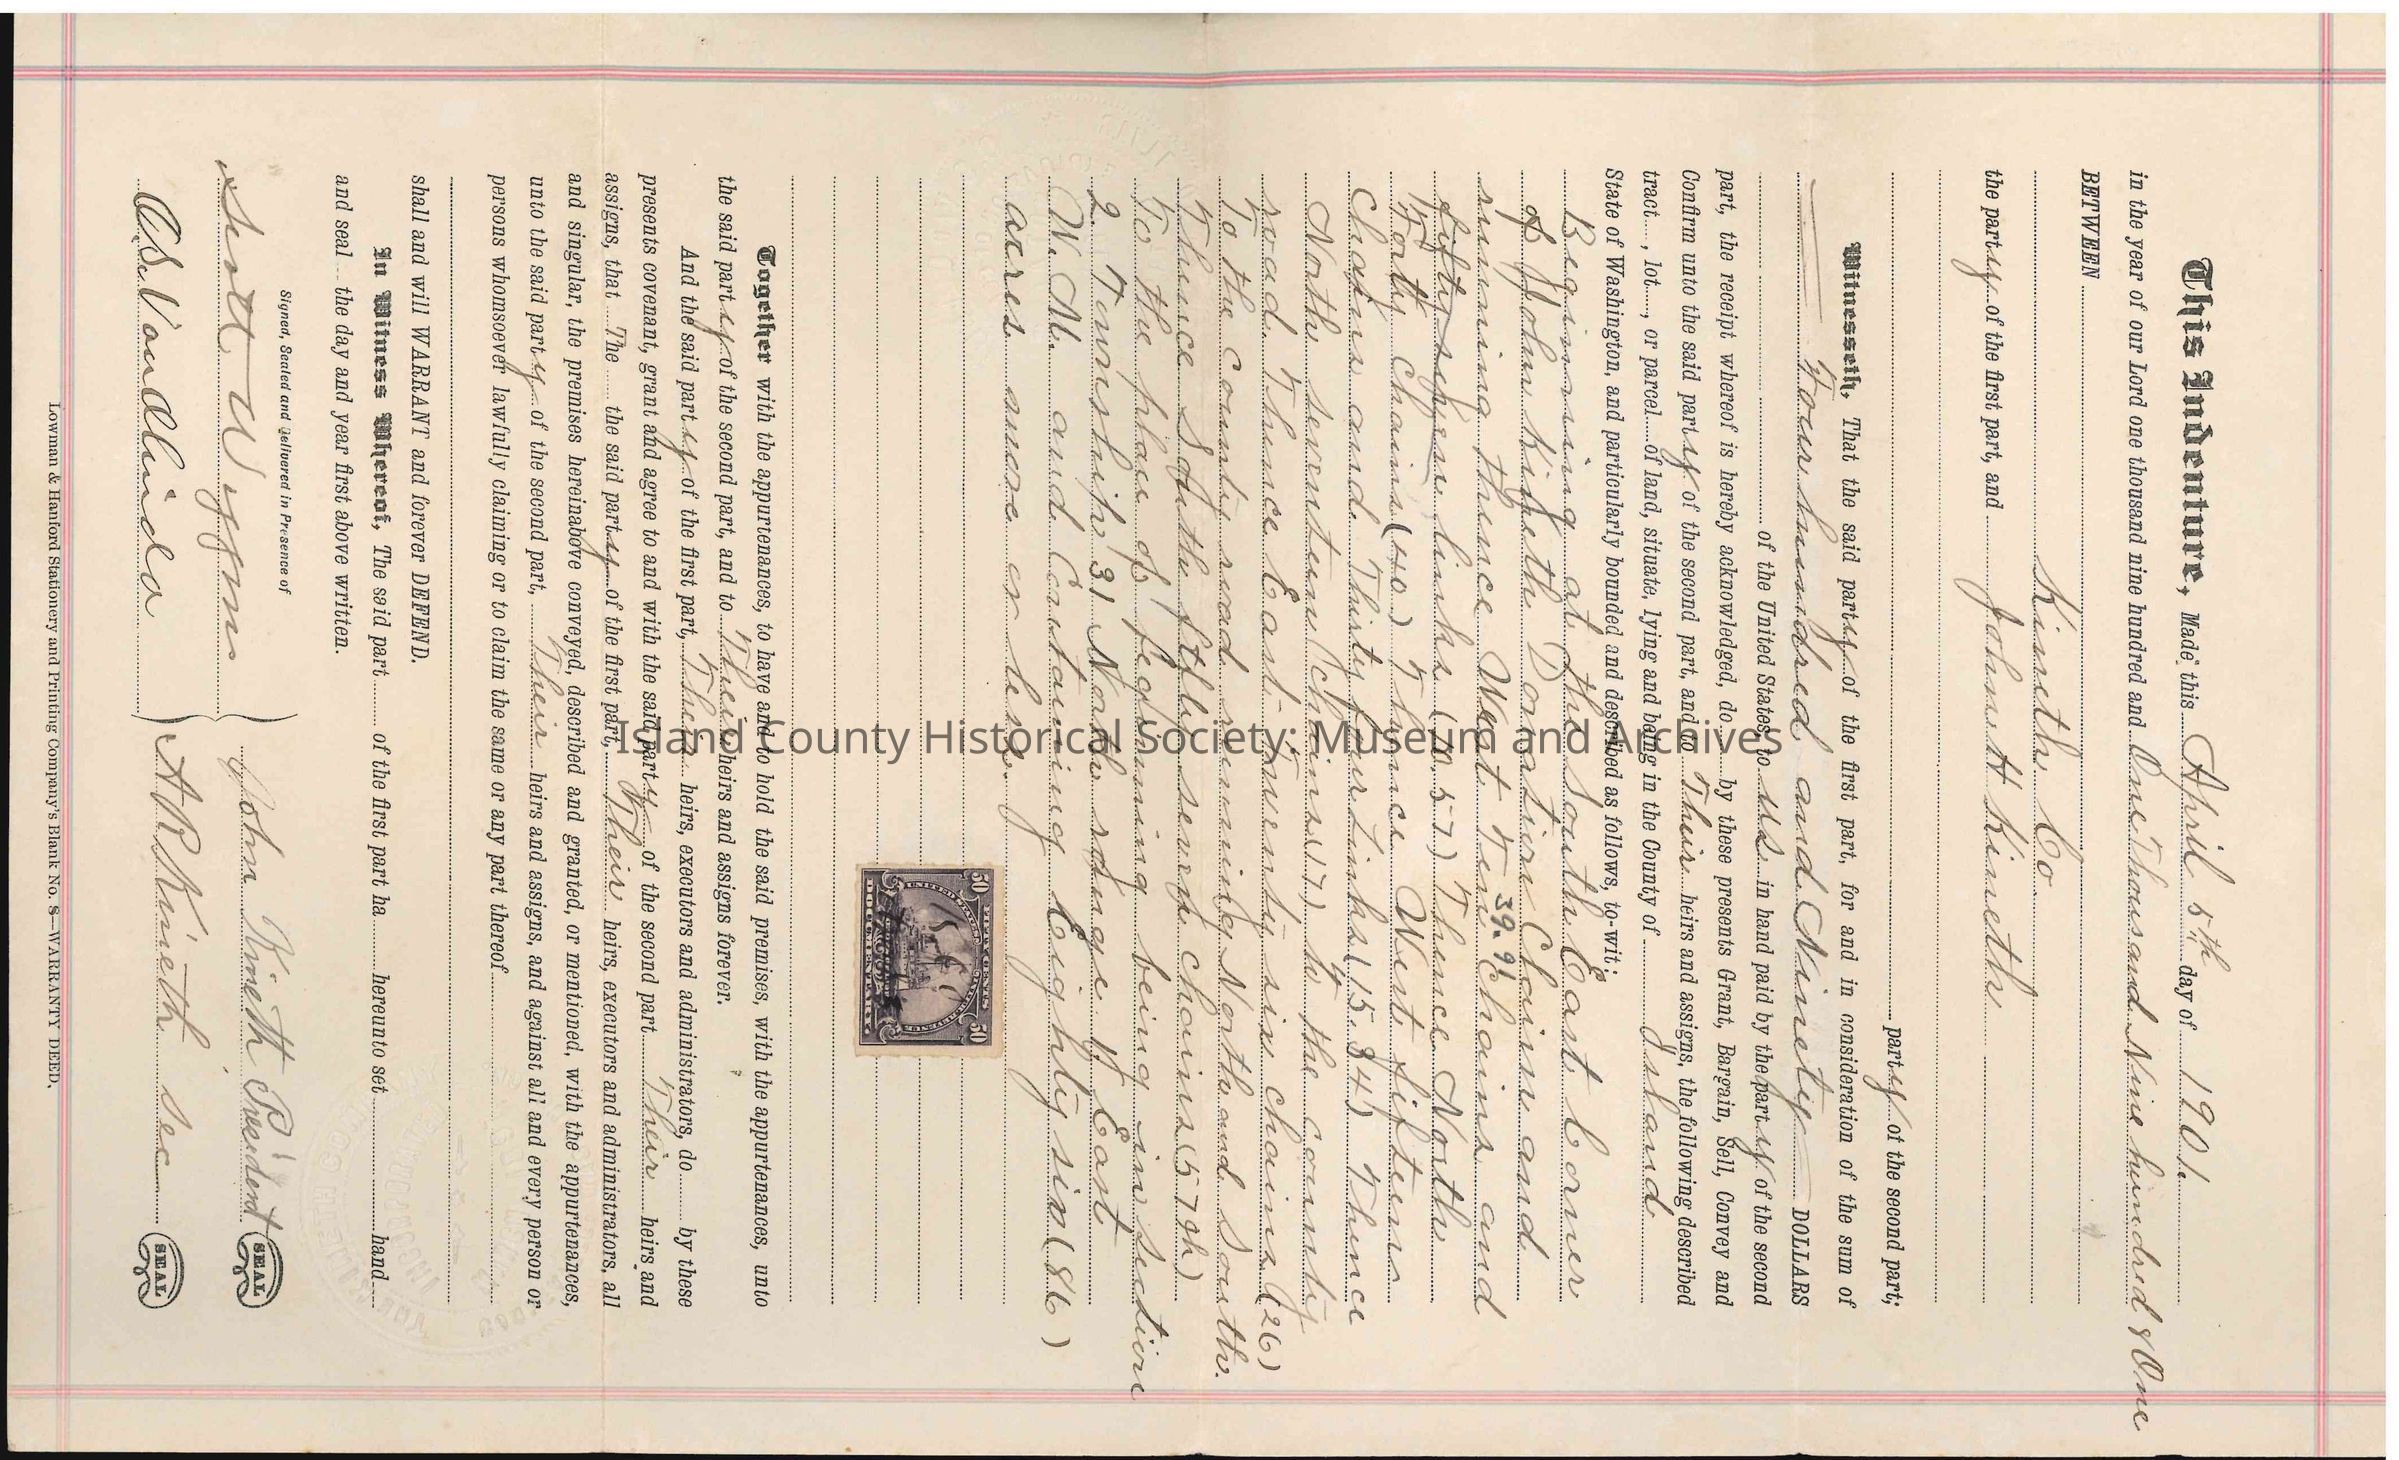 This Indenture, Made this April 5th day of 1901.
in the year of our Lord one thousand nine hundred and One Thousand Nine hundred & One
BETWEEN
Kineth Co
the party of the first part, and John H Kineth
party of the second part;
Witnesseth, That the said party of the first part, for and in consideration of the sum of
Four hundred and Ninety DOLLARS
of the United States, to us in hand paid by the party of the second
part, the receipt whereof is hereby acknowledged, do by these presents Grant, Bargain, Sell, Convey and
Confirm unto the said party of the second part, and to Their heirs and assigns, the following described
tract , lot , or parcel of land, situate, lying and being in the County of Island
State of Washington, and particularly bounded and described as follows, to-wit:
Beginning at the South East Corner
of John Kineth Donation Claim and
running thence West Ten 39.91 Chains and
fifty seven links (10.57) Thence North
Forty chains (40) Thence West fifteen
chains and Thirty four Links (15.34) Thence
North seventeen chains (17) to the county
road. Thence East Twenty six chains (26)
To the county road running North and South.
Thence South fifty seven chains (57 ch)
To the place of beginning being in section
2 Township 31 North range 1 East
W. M. and Containing Eighty six (86)
acres more or less.
50 50
FIFTY CENTS
DOCUMENTARY
Together with the appurtenances, to have and to hold the said premises, with the appurtenances, unto
the said party of the second part, and to Their heirs and assigns forever.
And the said party of the first part, Their heirs, executors and administrators, do by these
presents covenant, grant and agree to and with the said party of the second part Their heirs and
assigns, that The the said party of the first part, Their heirs, executors and administrators, all
and singular, the premises hereinabove conveyed, described and granted, or mentioned, with the appurtenances,
unto the said party of the second part, Their heirs and assigns, and against all and every person or
persons whomsoever lawfully claiming or to claim the same or any part thereof
shall and will WARRANT and forever DEFEND.
In Witness Whereof, The said part of the first part ha hereunto set hand
and seal the day and year first above written.
Signed, Sealed and Delivered in Presence of
Scott Wyom John Kineth President SEAL
A R Kineth Sec SEAL
Lowman & Hanford Stationery and Printing Company's Blank No. 8—WARRANTY DEED.
Island County Historical Society: Museum and Archives